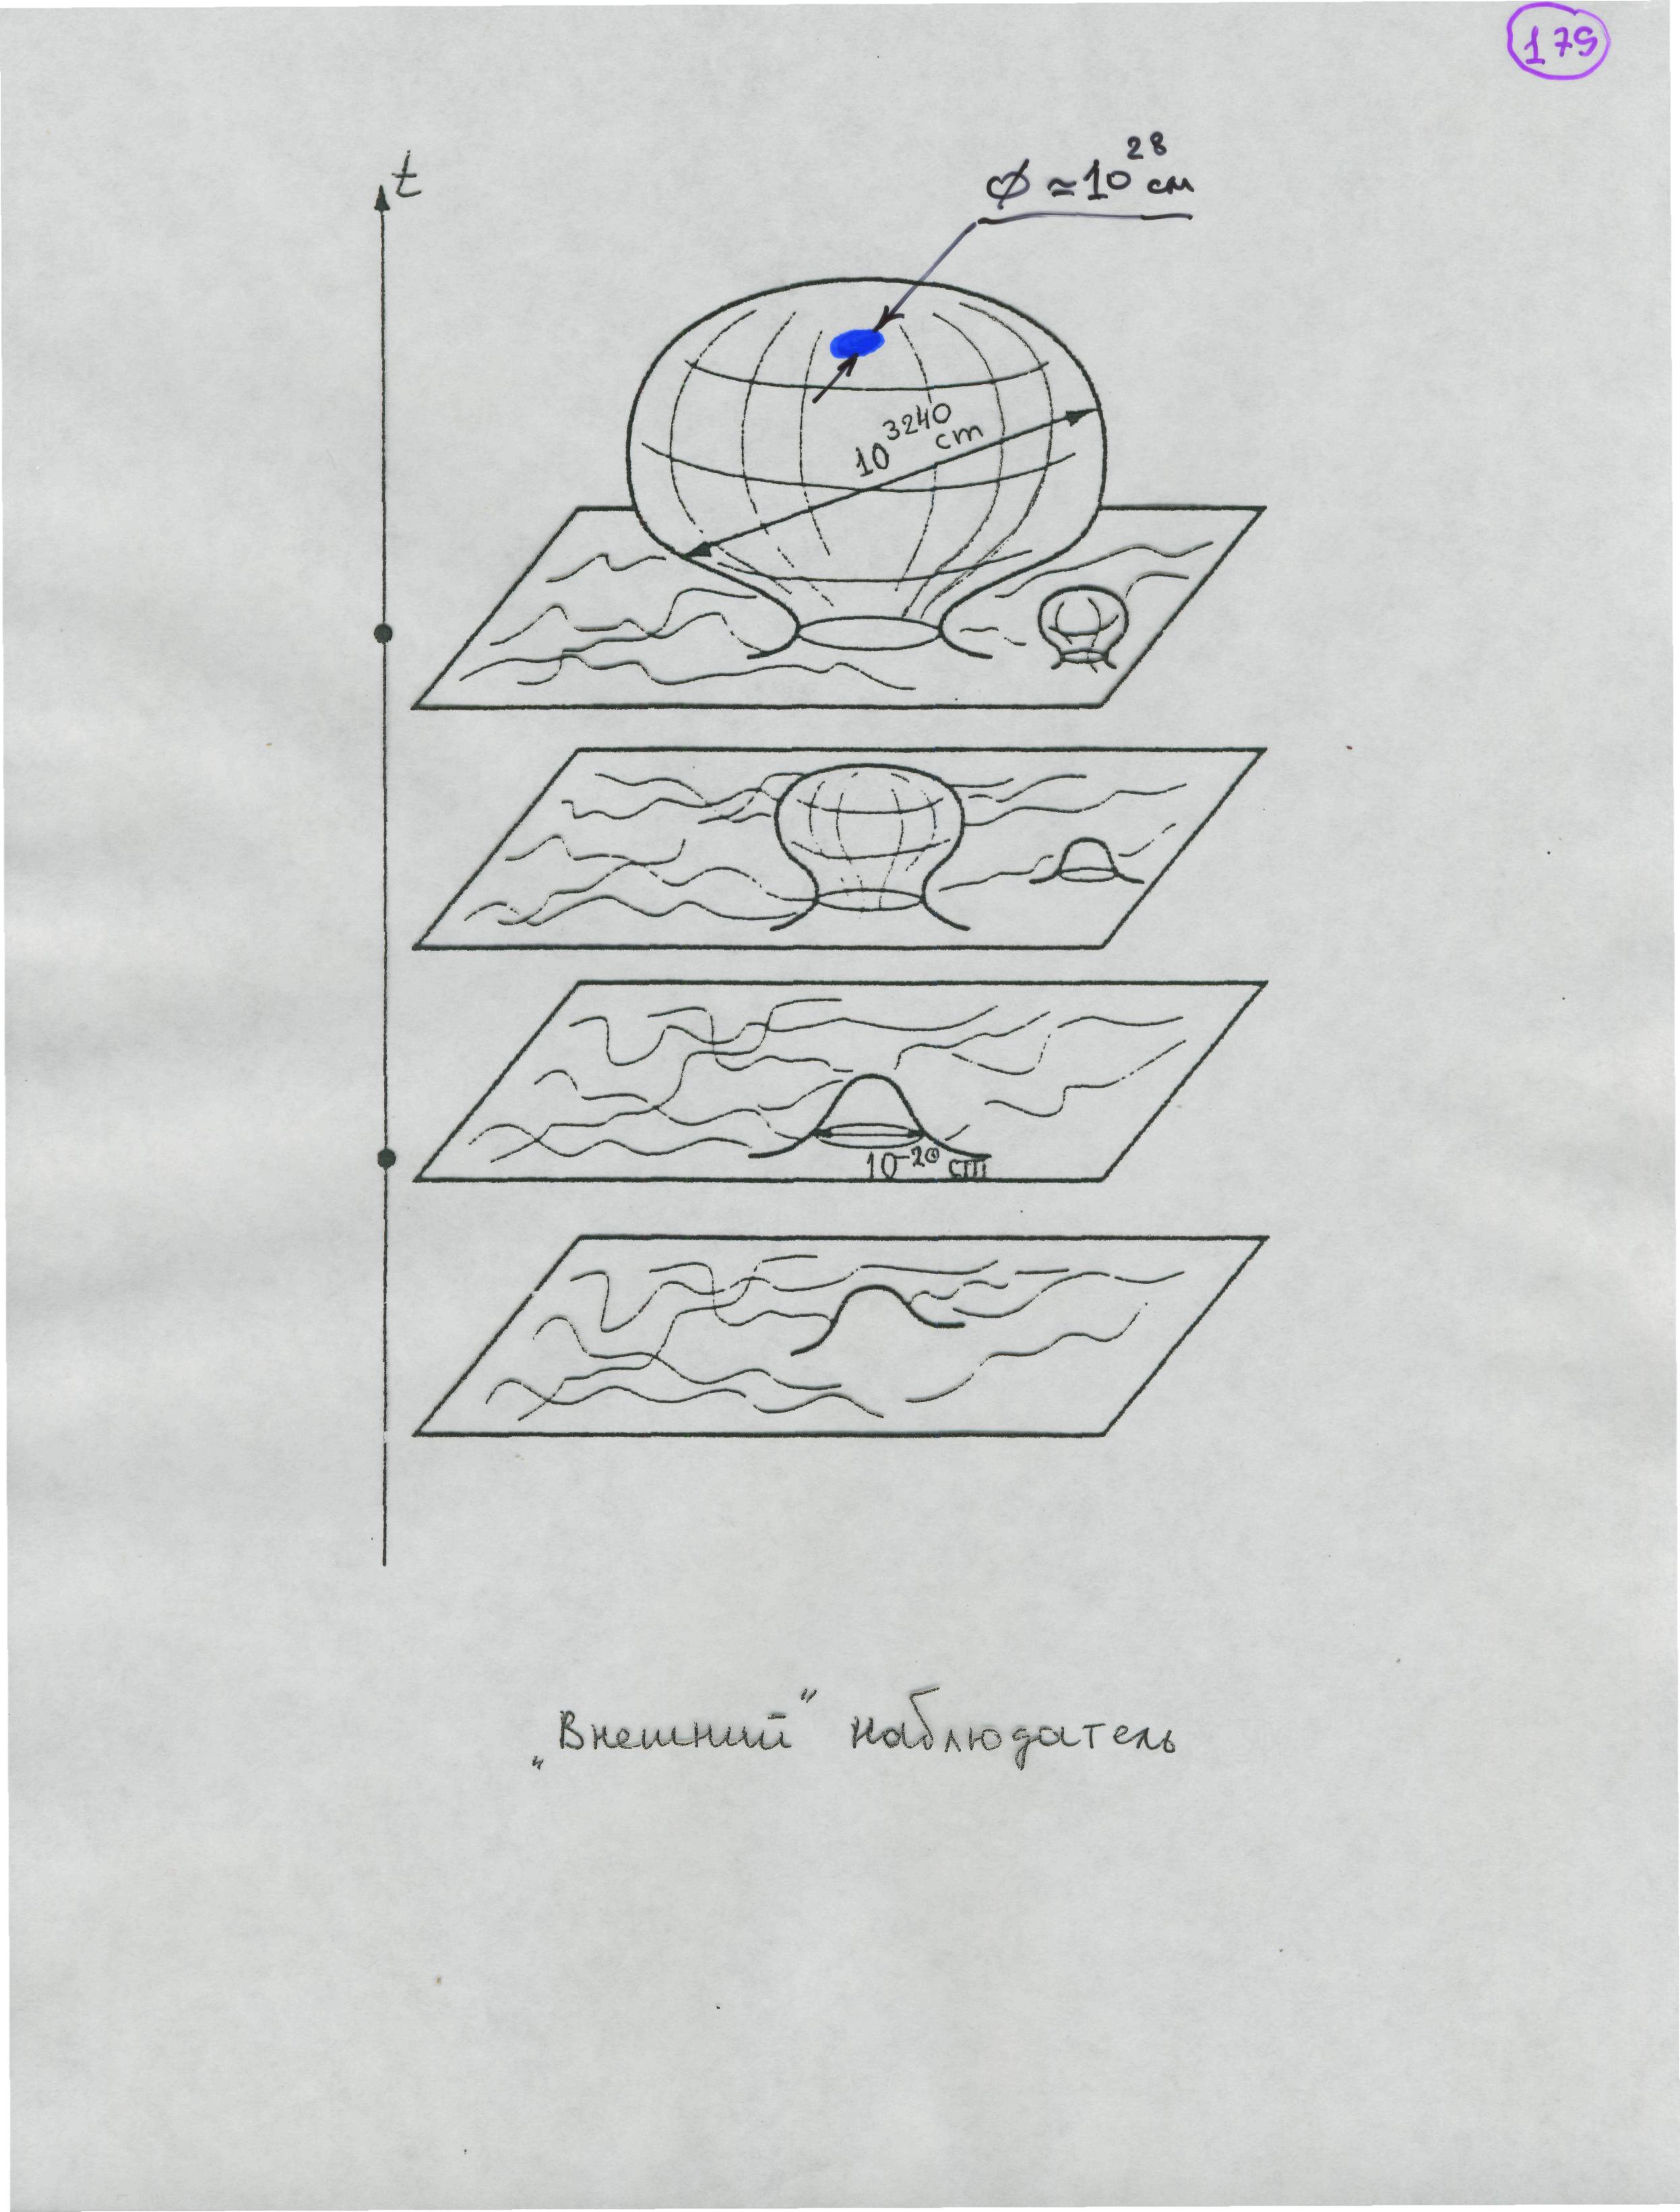 179
t
ϕ ≃ 10²⁸ см
10³²⁴⁰ cm
10⁻²⁰ cm
„Внешний” наблюдатель